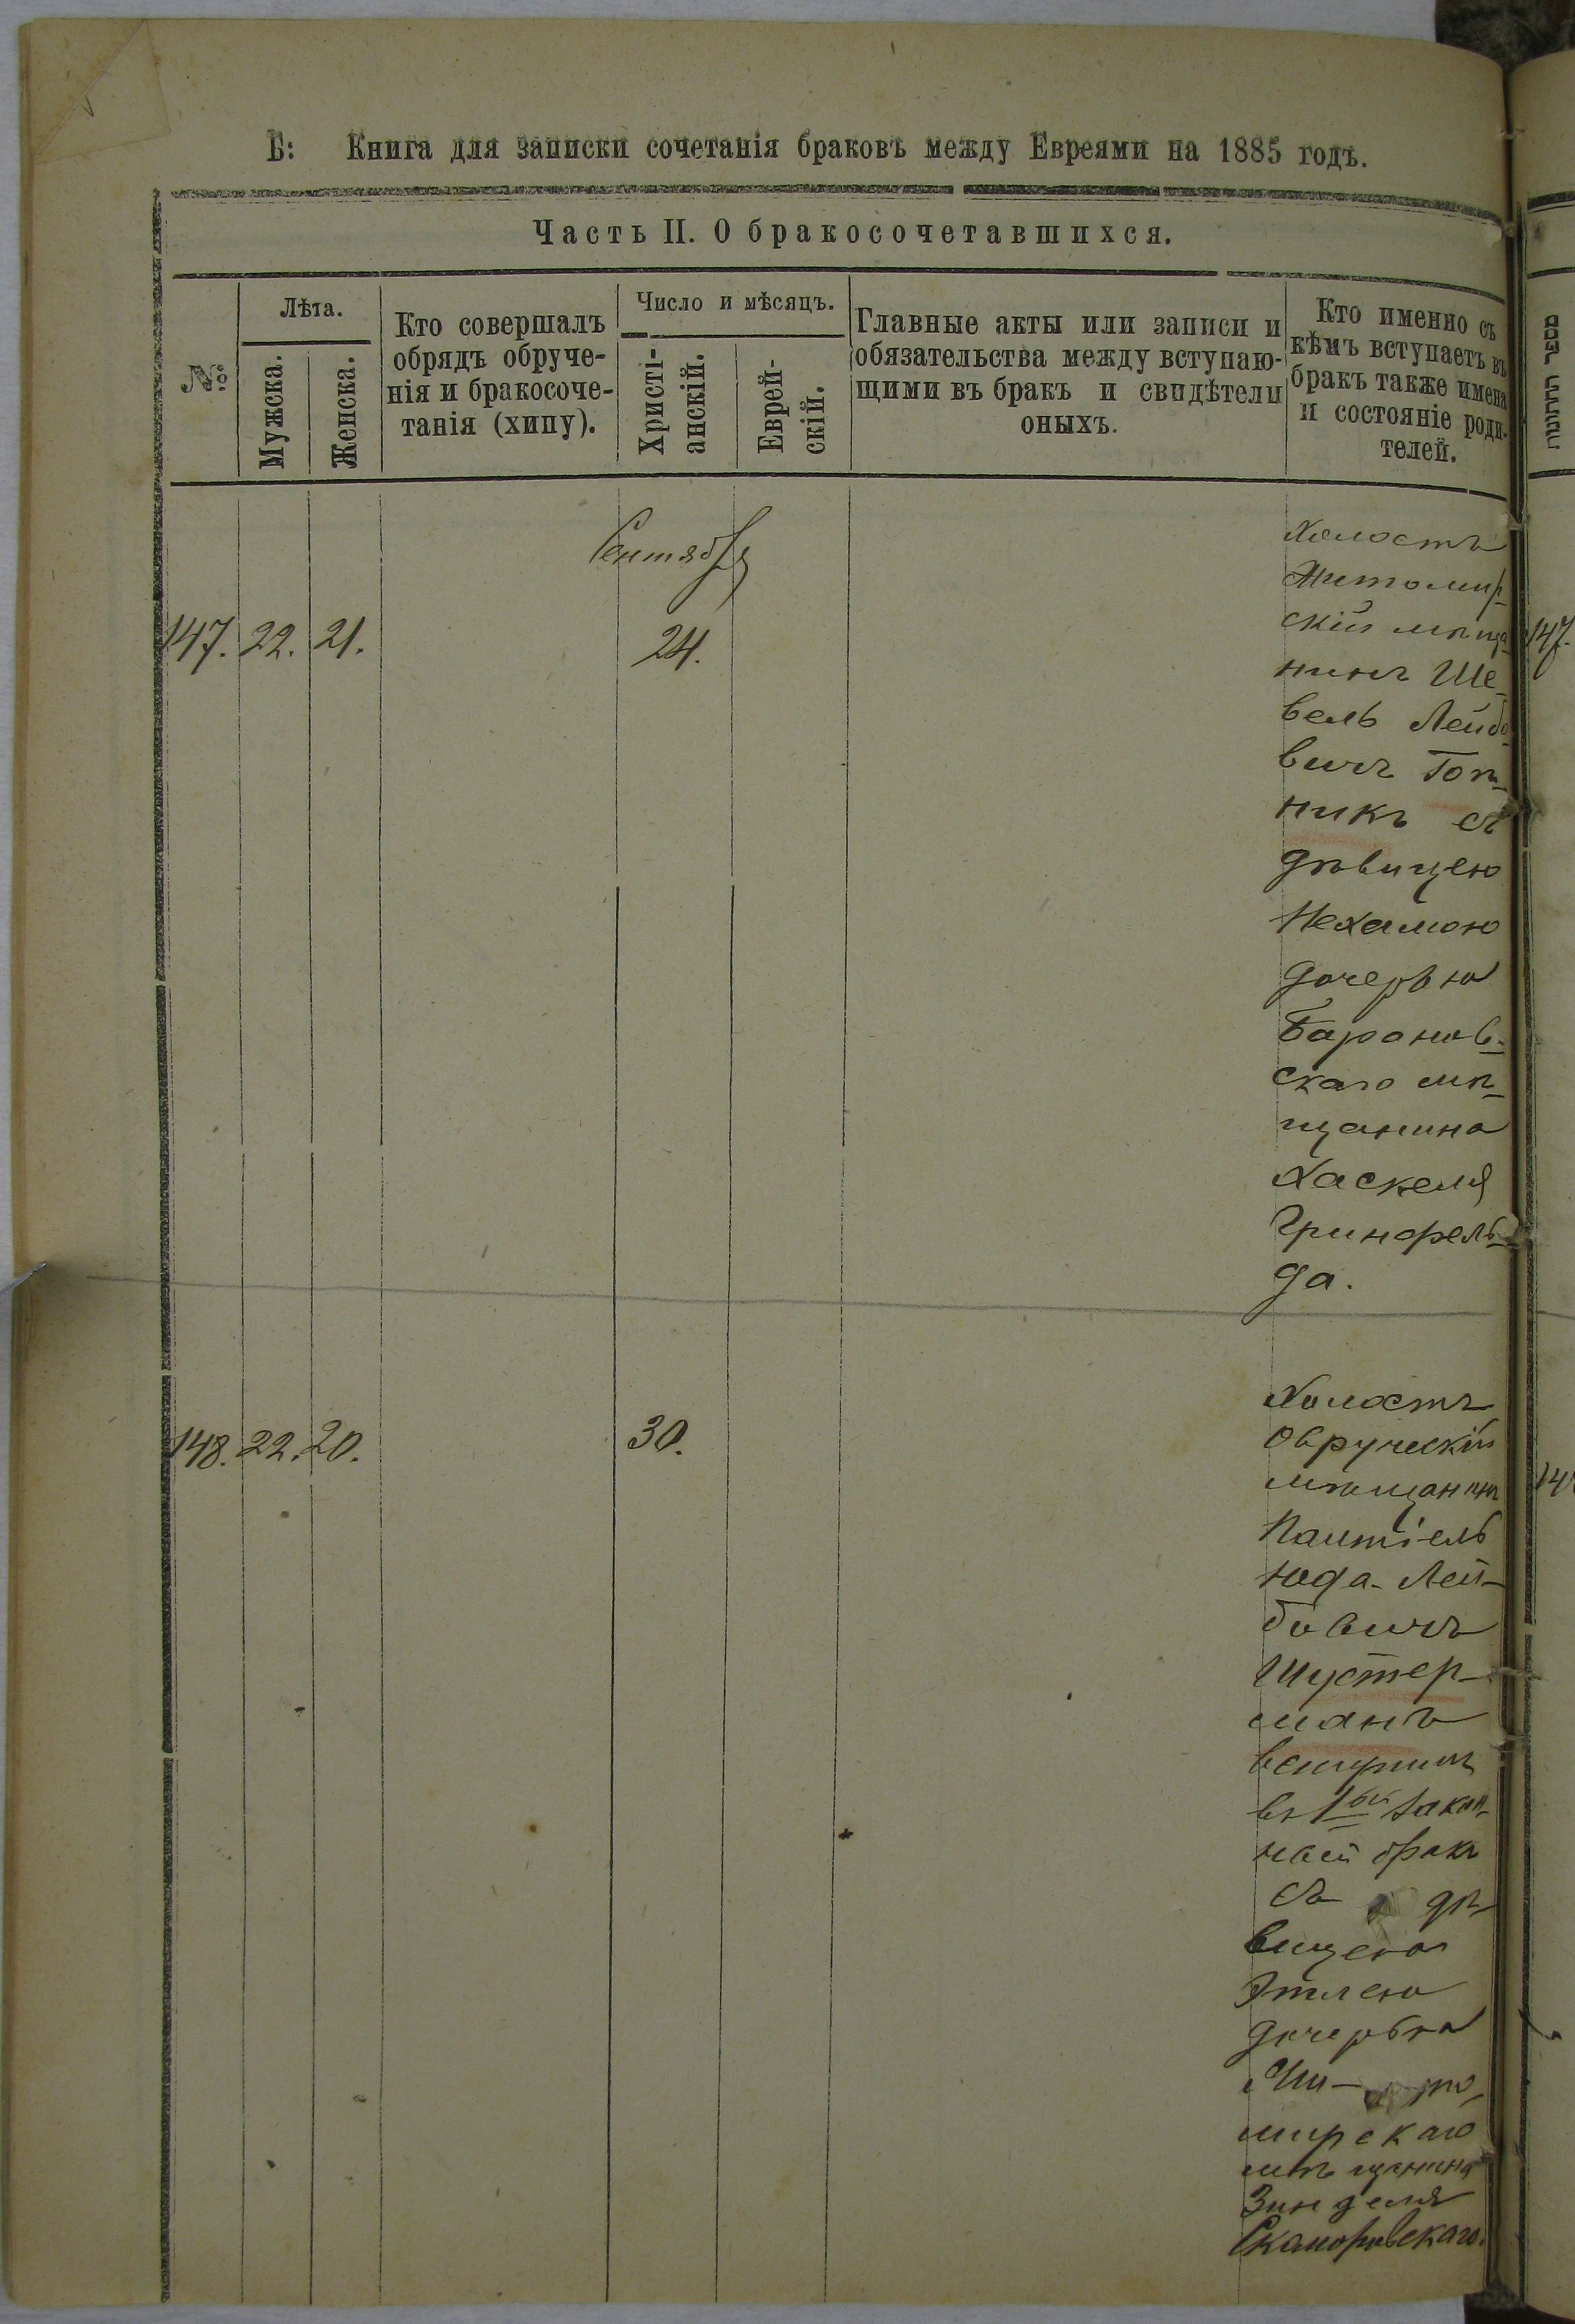 Б: Книга для записки сочетанія браковъ между Евреями на 1885 годъ.
Часть II. О бракосочетавшихся.
№
Лѣта.
Мужска.
Женска.
Кто совершалъ
обрядъ обруче-
нія и бракосоче-
танія (хипу).
Число и мѣсяцъ.
Христі-
анскій.
Еврей-
скій.
Главные акты или записи и
обязательства между вступаю-
щими въ бракъ и свидѣтели
оныхъ.
Кто именно съ
кѣмъ вступаетъ въ
бракъ также имена
и состояніе роди-
телей.
Сентября
147. 22. 21. 24.
Холостъ
Житомир-
скій мѣща-
нинъ Ше-
вель Лейбо-
вичъ Гоп-
никъ съ
дѣвицею
Нехамою
дочерью
Баранов-
скаго мѣ-
щанина
Хаскеля
Гринфель-
да.
148. 22. 20. 30.
Холостъ
Овручскій
мѣщанинъ
Палтіель
Юда-Лей-
бовичъ
Шустер-
манъ
вступилъ
въ 1ый закон-
ный бракъ
съ дѣ-
вицею
Этлею
дочерью
Жи-то-
мирскаго
мѣщанина
Зинделя
147.